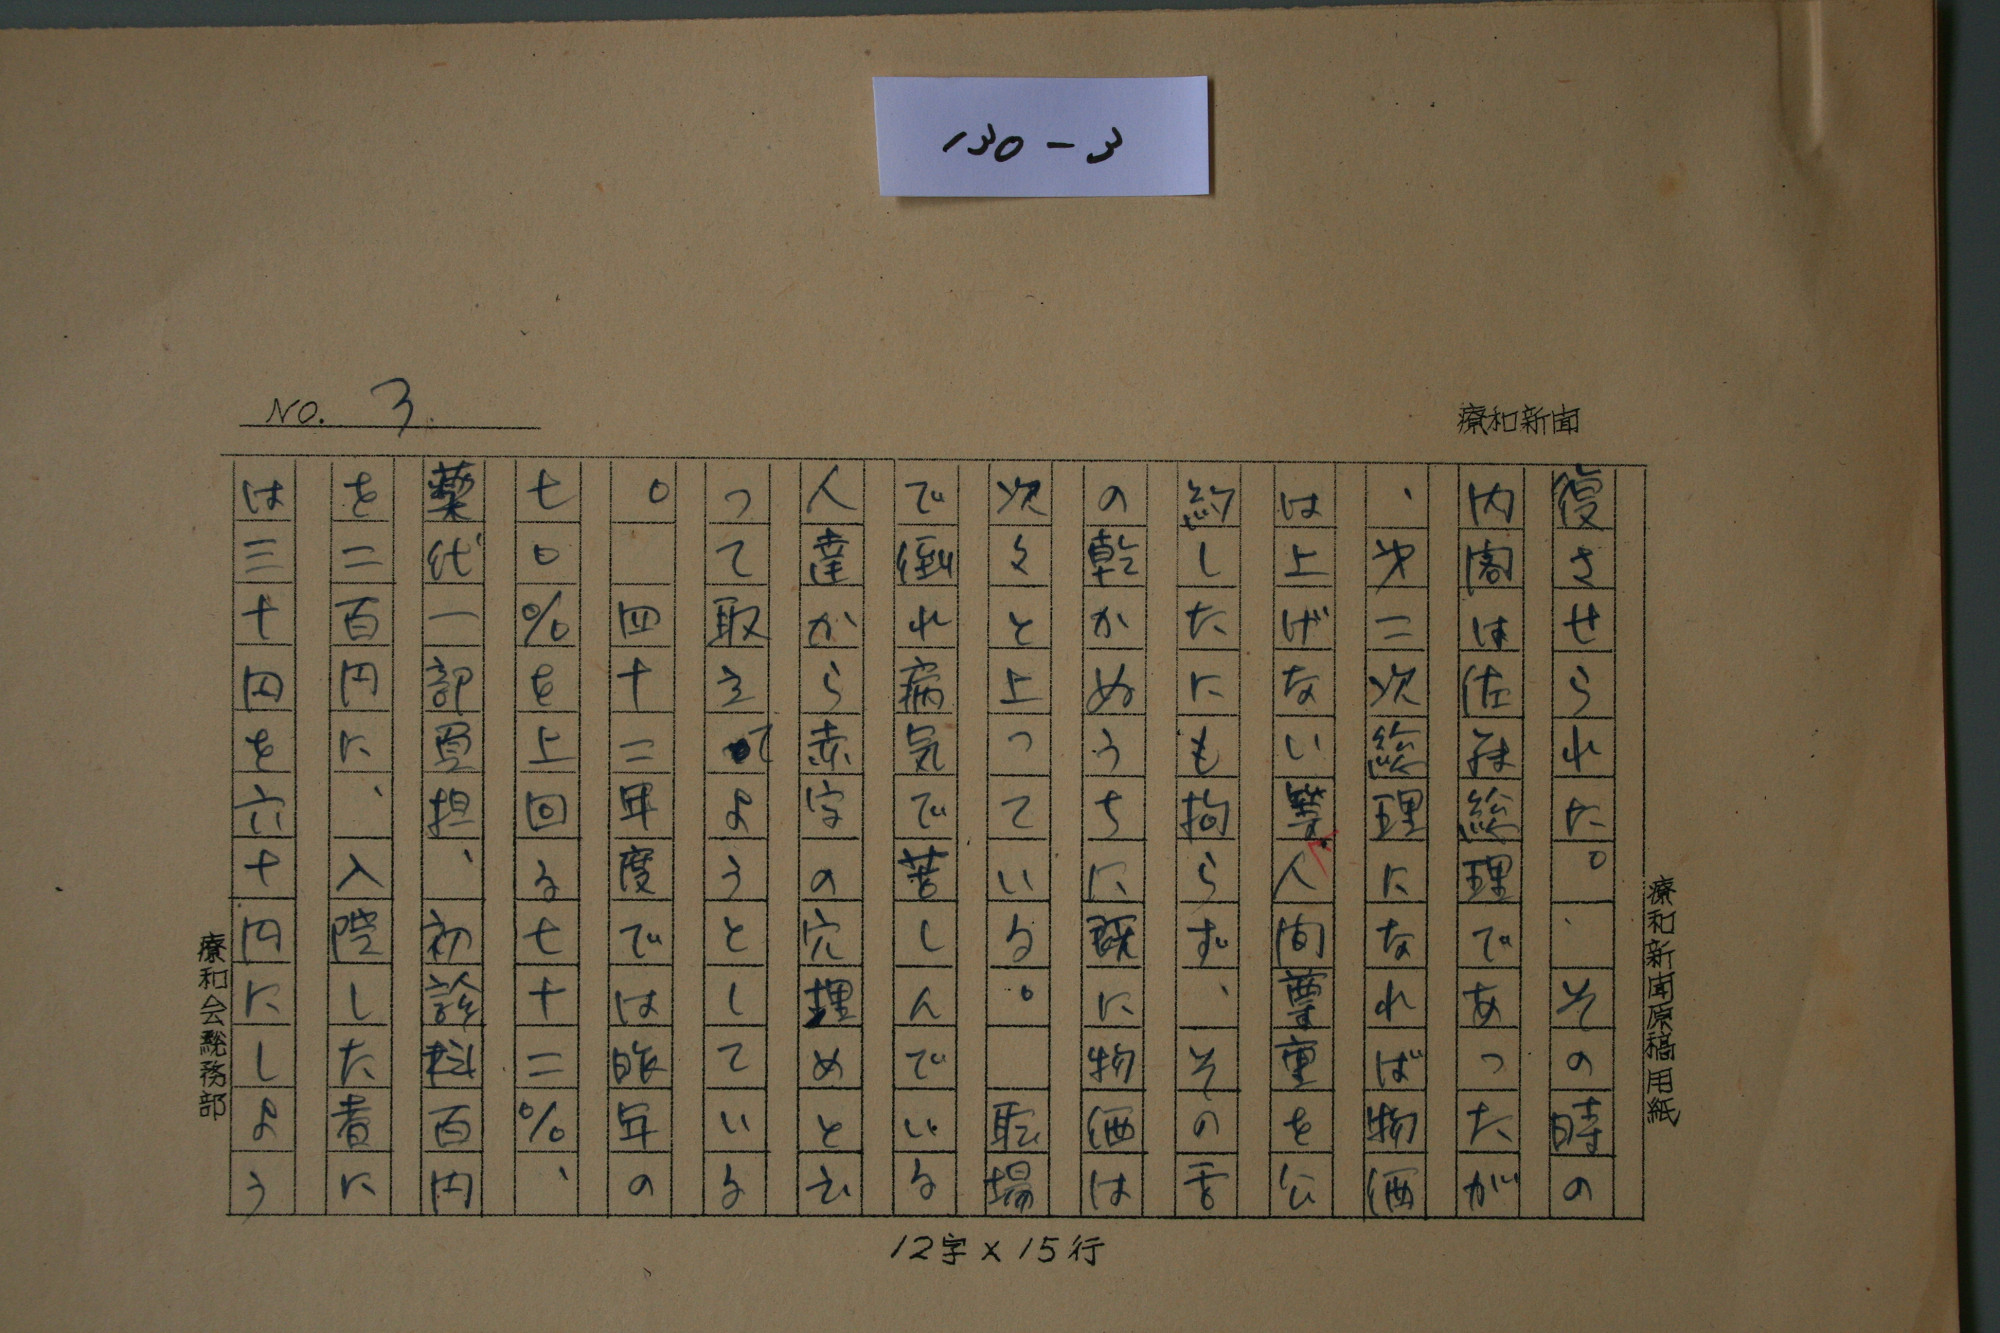 130-3
NO. 3
療和新聞
療和新聞原稿用紙
復させられた。、その時の
内閣は佐藤総理であったが
、第二次総理になれば物価
は上げない等人間尊重を公
約したにも拘らず、その舌
の乾かぬうちに既に物価は
次々と上っている。 職場
で倒れ病気で苦しんでいる
人達から赤字の穴埋めと云
って取立てようとしている
。 四十二年度では昨年の
七〇%を上回る七十二%、
薬代一部負担、初診料百円
を二百円に、入院した者に
は三十円を六十円にしよう
療和会総務部
12字×15行